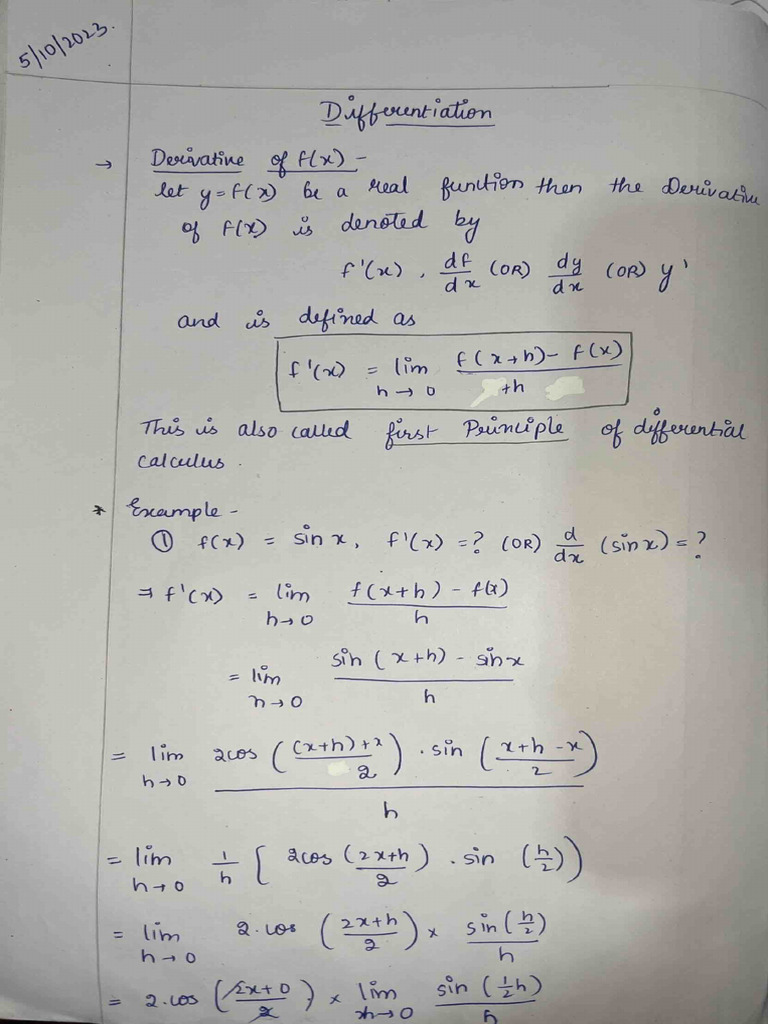 5/10/2023.
Differentiation
→ Derivative of f(x) -
let y = f(x) be a real function then the Derivative
of f(x) is denoted by
f'(x), df/dx (OR) dy/dx (OR) y'
and is defined as
f'(x) = lim h→0 f(x+h) - f(x) / +h
This is also called first Principle of differential
calculus.
* Example -
① f(x) = sin x, f'(x) = ? (OR) d/dx (sin x) = ?
⇒ f'(x) = lim h→0 f(x+h) - f(x) / h
= lim h→0 sin (x+h) - sin x / h
= lim h→0 2cos ((x+h)+x / 2) . sin (x+h-x / 2) / h
= lim h→0 1/h [ 2cos (2x+h / 2) . sin (h/2))
= lim h→0 2.cos (2x+h / 2) × sin (h/2) / h
= 2.cos (2x+0 / 2) × lim h→0 sin (1/2 h) / h